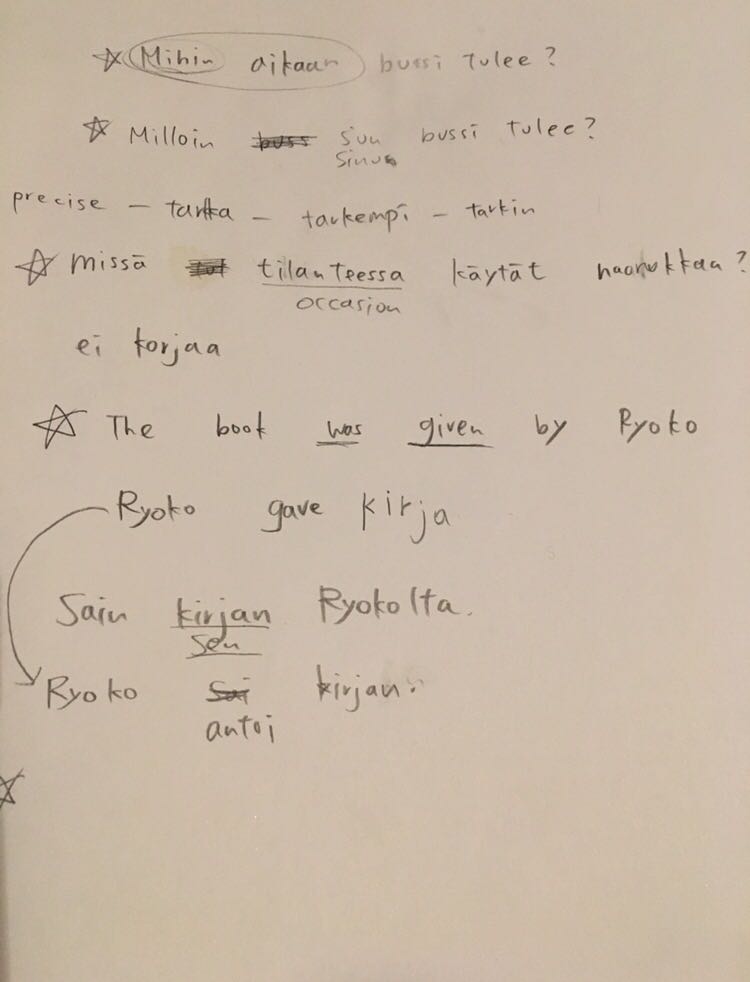 Mihin aikaan bussi tulee?
Milloin sun bussi tulee?
sinun
precise - tarkka - tarkempi - tarkin
missä tilanteessa käytät naamukkaa?
occasion
ei korjaa
The book was given by Ryoko
Ryoko gave kirja
Sain kirjan Ryokolta.
sen
Ryoko kirjan
antoi